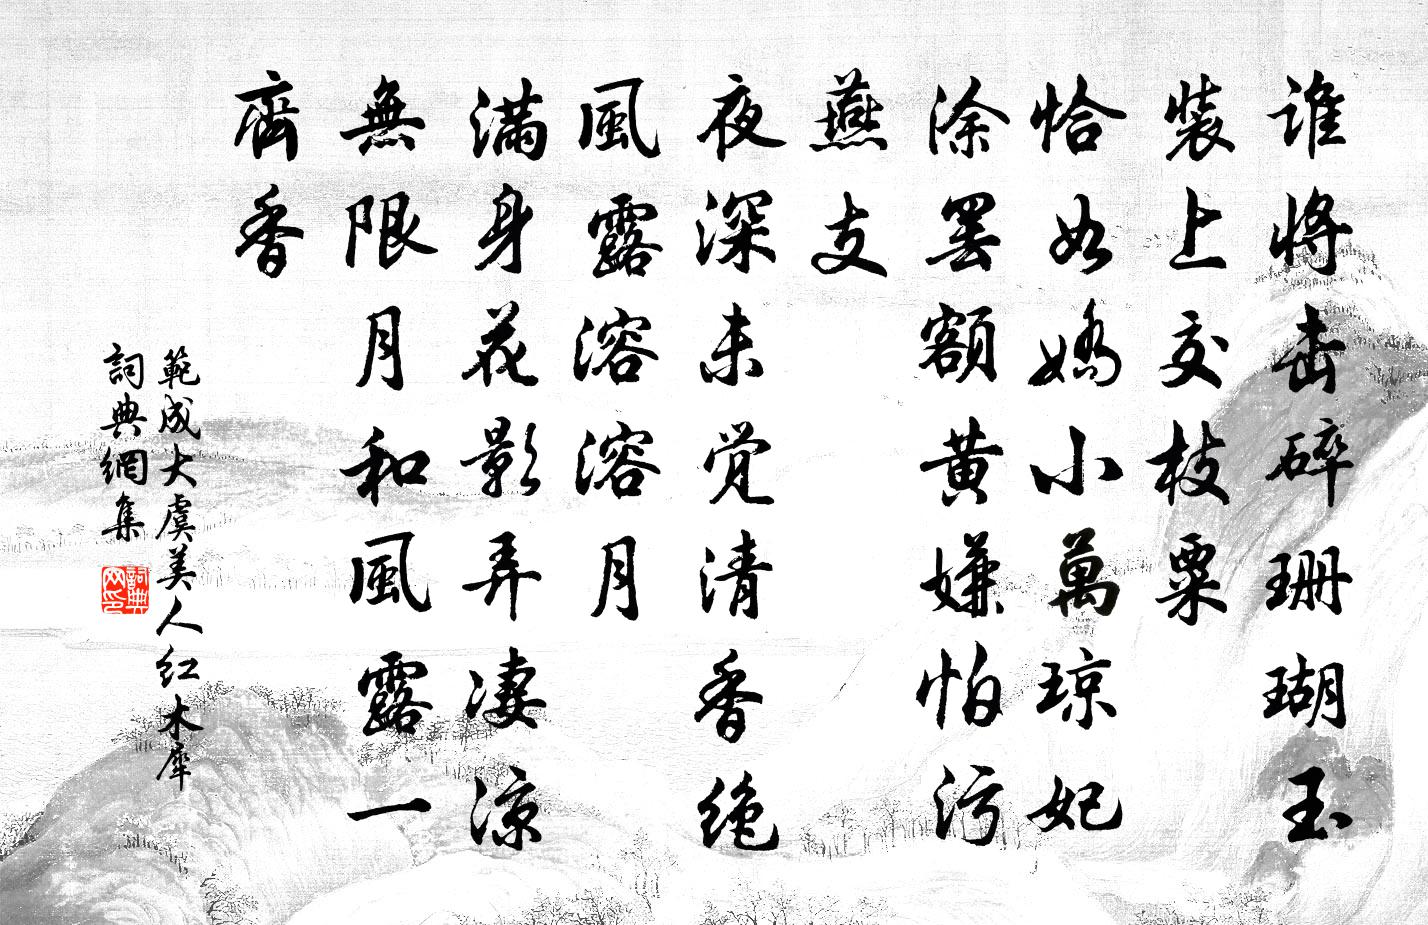 谁將击碎珊瑚玉
裝上交枝粟
恰如嬌小萬琼妃
涂罢额黄嫌怕污
燕支
夜深未觉清香绝
風露溶溶月
满身花影弄凄凉
無限月和風露一
齊香
範成大虞美人红木犀
詞典網集
詞典網印